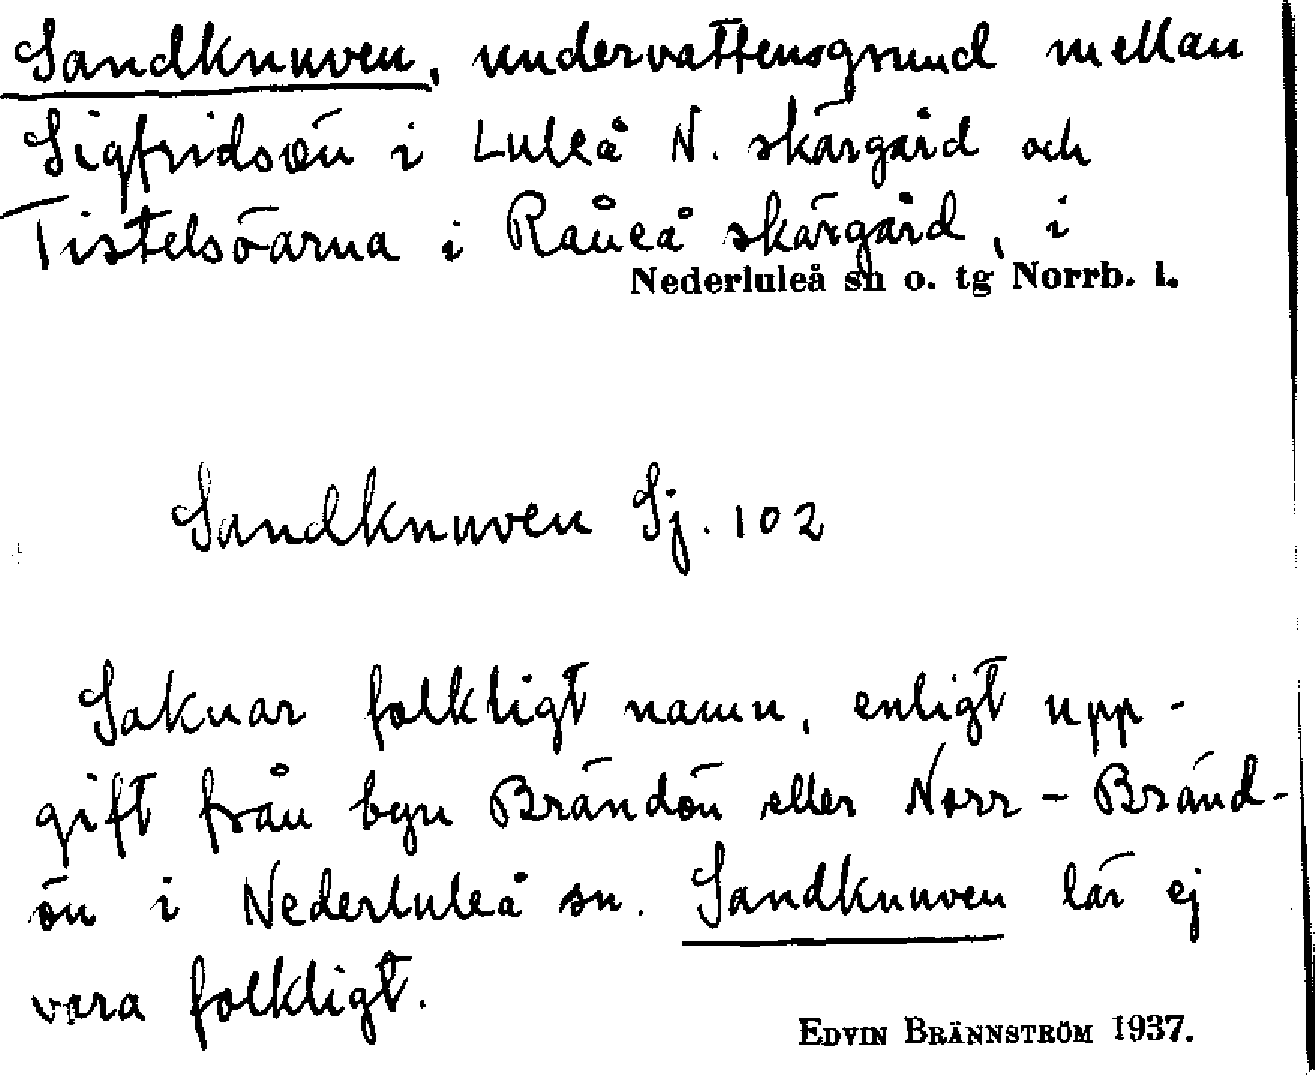 Sandknuven, undervattensgrund mellan
Sigfridsön i Luleå N. skärgård och
Tistelsöarna i Råneå skärgård, i
Nederluleå sn o. tg Norrb. l.
Sandknuven Sj. 102
Saknar folkligt namn, enligt upp-
gift från byn Brändön eller Norr-Bränd-
ön i Nederluleå sn. Sandknuven lär ej
vara folkligt.
EDVIN BRÄNNSTRÖM 1937.